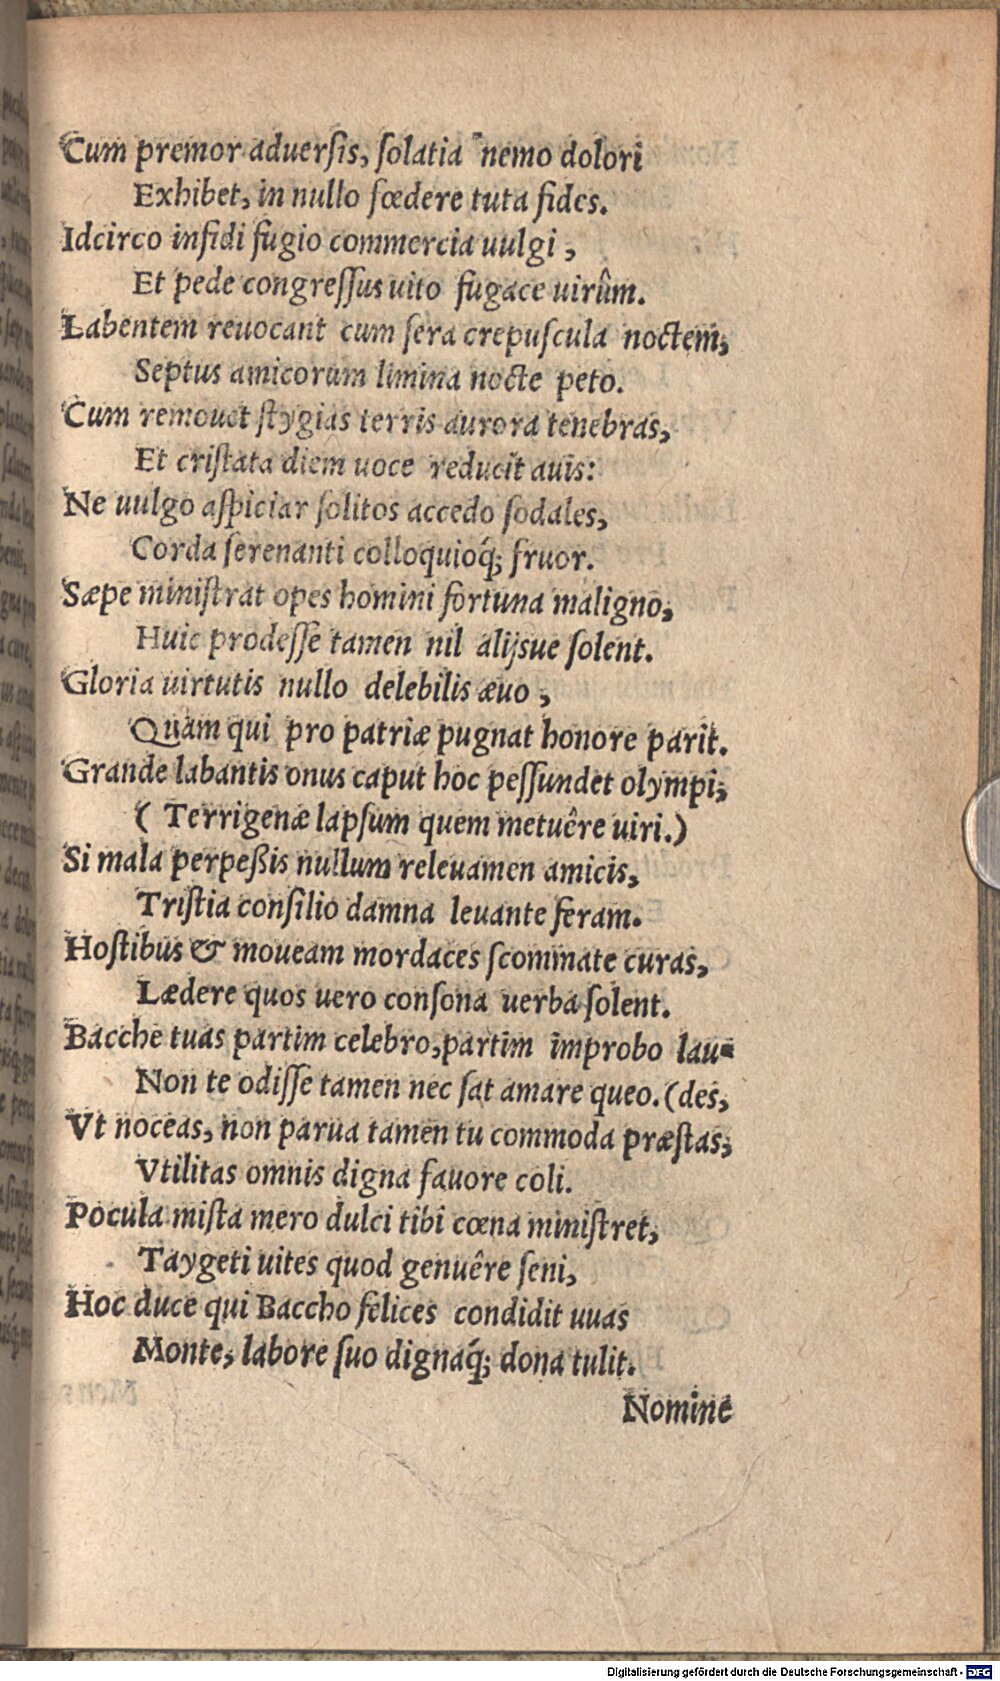 Cum premor aduerſis, ſolatia nemo dolori
Exhibet, in nullo fœdere tuta fides.
Idcirco infidi fugio commercia uulgi,
Et pede congreſſus uito fugace uirûm.
Labentem reuocant cum ſera crepuſcula noctem,
Septus amicorum limina nocte peto.
Cum remouet ſtygias terris aurora tenebras,
Et criſtata diem uoce reducit auis:
Ne uulgo aſpiciar ſolitos accedo ſodales,
Corda ſerenanti colloquioq́; fruor.
Sæpe miniſtrat opes homini fortuna maligno,
Huic prodeſſe tamen nil alijsue ſolent.
Gloria uirtutis nullo delebilis æuo,
Quam qui pro patriæ pugnat honore parit.
Grande labantis onus caput hoc peſſundet olympi,
( Terrigenæ lapſum quem metuêre uiri.)
Si mala perpeßis nullum releuamen amicis,
Triſtia conſilio damna leuante feram.
Hoſtibus & moueam mordaces ſcommate curas,
Lædere quos uero conſona uerba ſolent.
Bacche tuas partim celebro, partim improbo lau-
Non te odiſſe tamen nec ſat amare queo. (des,
Vt noceas, non parua tamen tu commoda præſtas;
Vtilitas omnis digna fauore coli.
Pocula miſta mero dulci tibi cœna miniſtret,
Taygeti uites quod genuêre ſeni,
Hoc duce qui Baccho felices condidit uuas
Monte, labore ſuo dignaq́; dona tulit.
Nomine
Digitalisierung gefördert durch die Deutsche Forschungsgemeinschaft - DFG